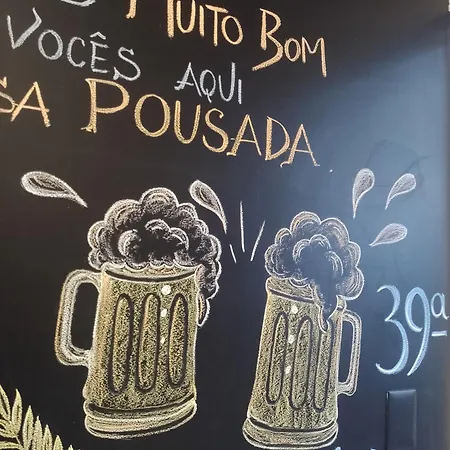 MUITO BOM
VOCÊS AQUI
SA POUSADA
39ª